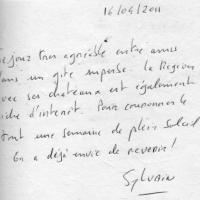 16/04/2011
Séjour très agréable entre amis
dans un gîte superbe. La Région
avec ses châteaux est également
riche d'intérêt. Pour couronner le
tout une semaine de plein Soleil
On a déjà envie de revenir!
Sylvain